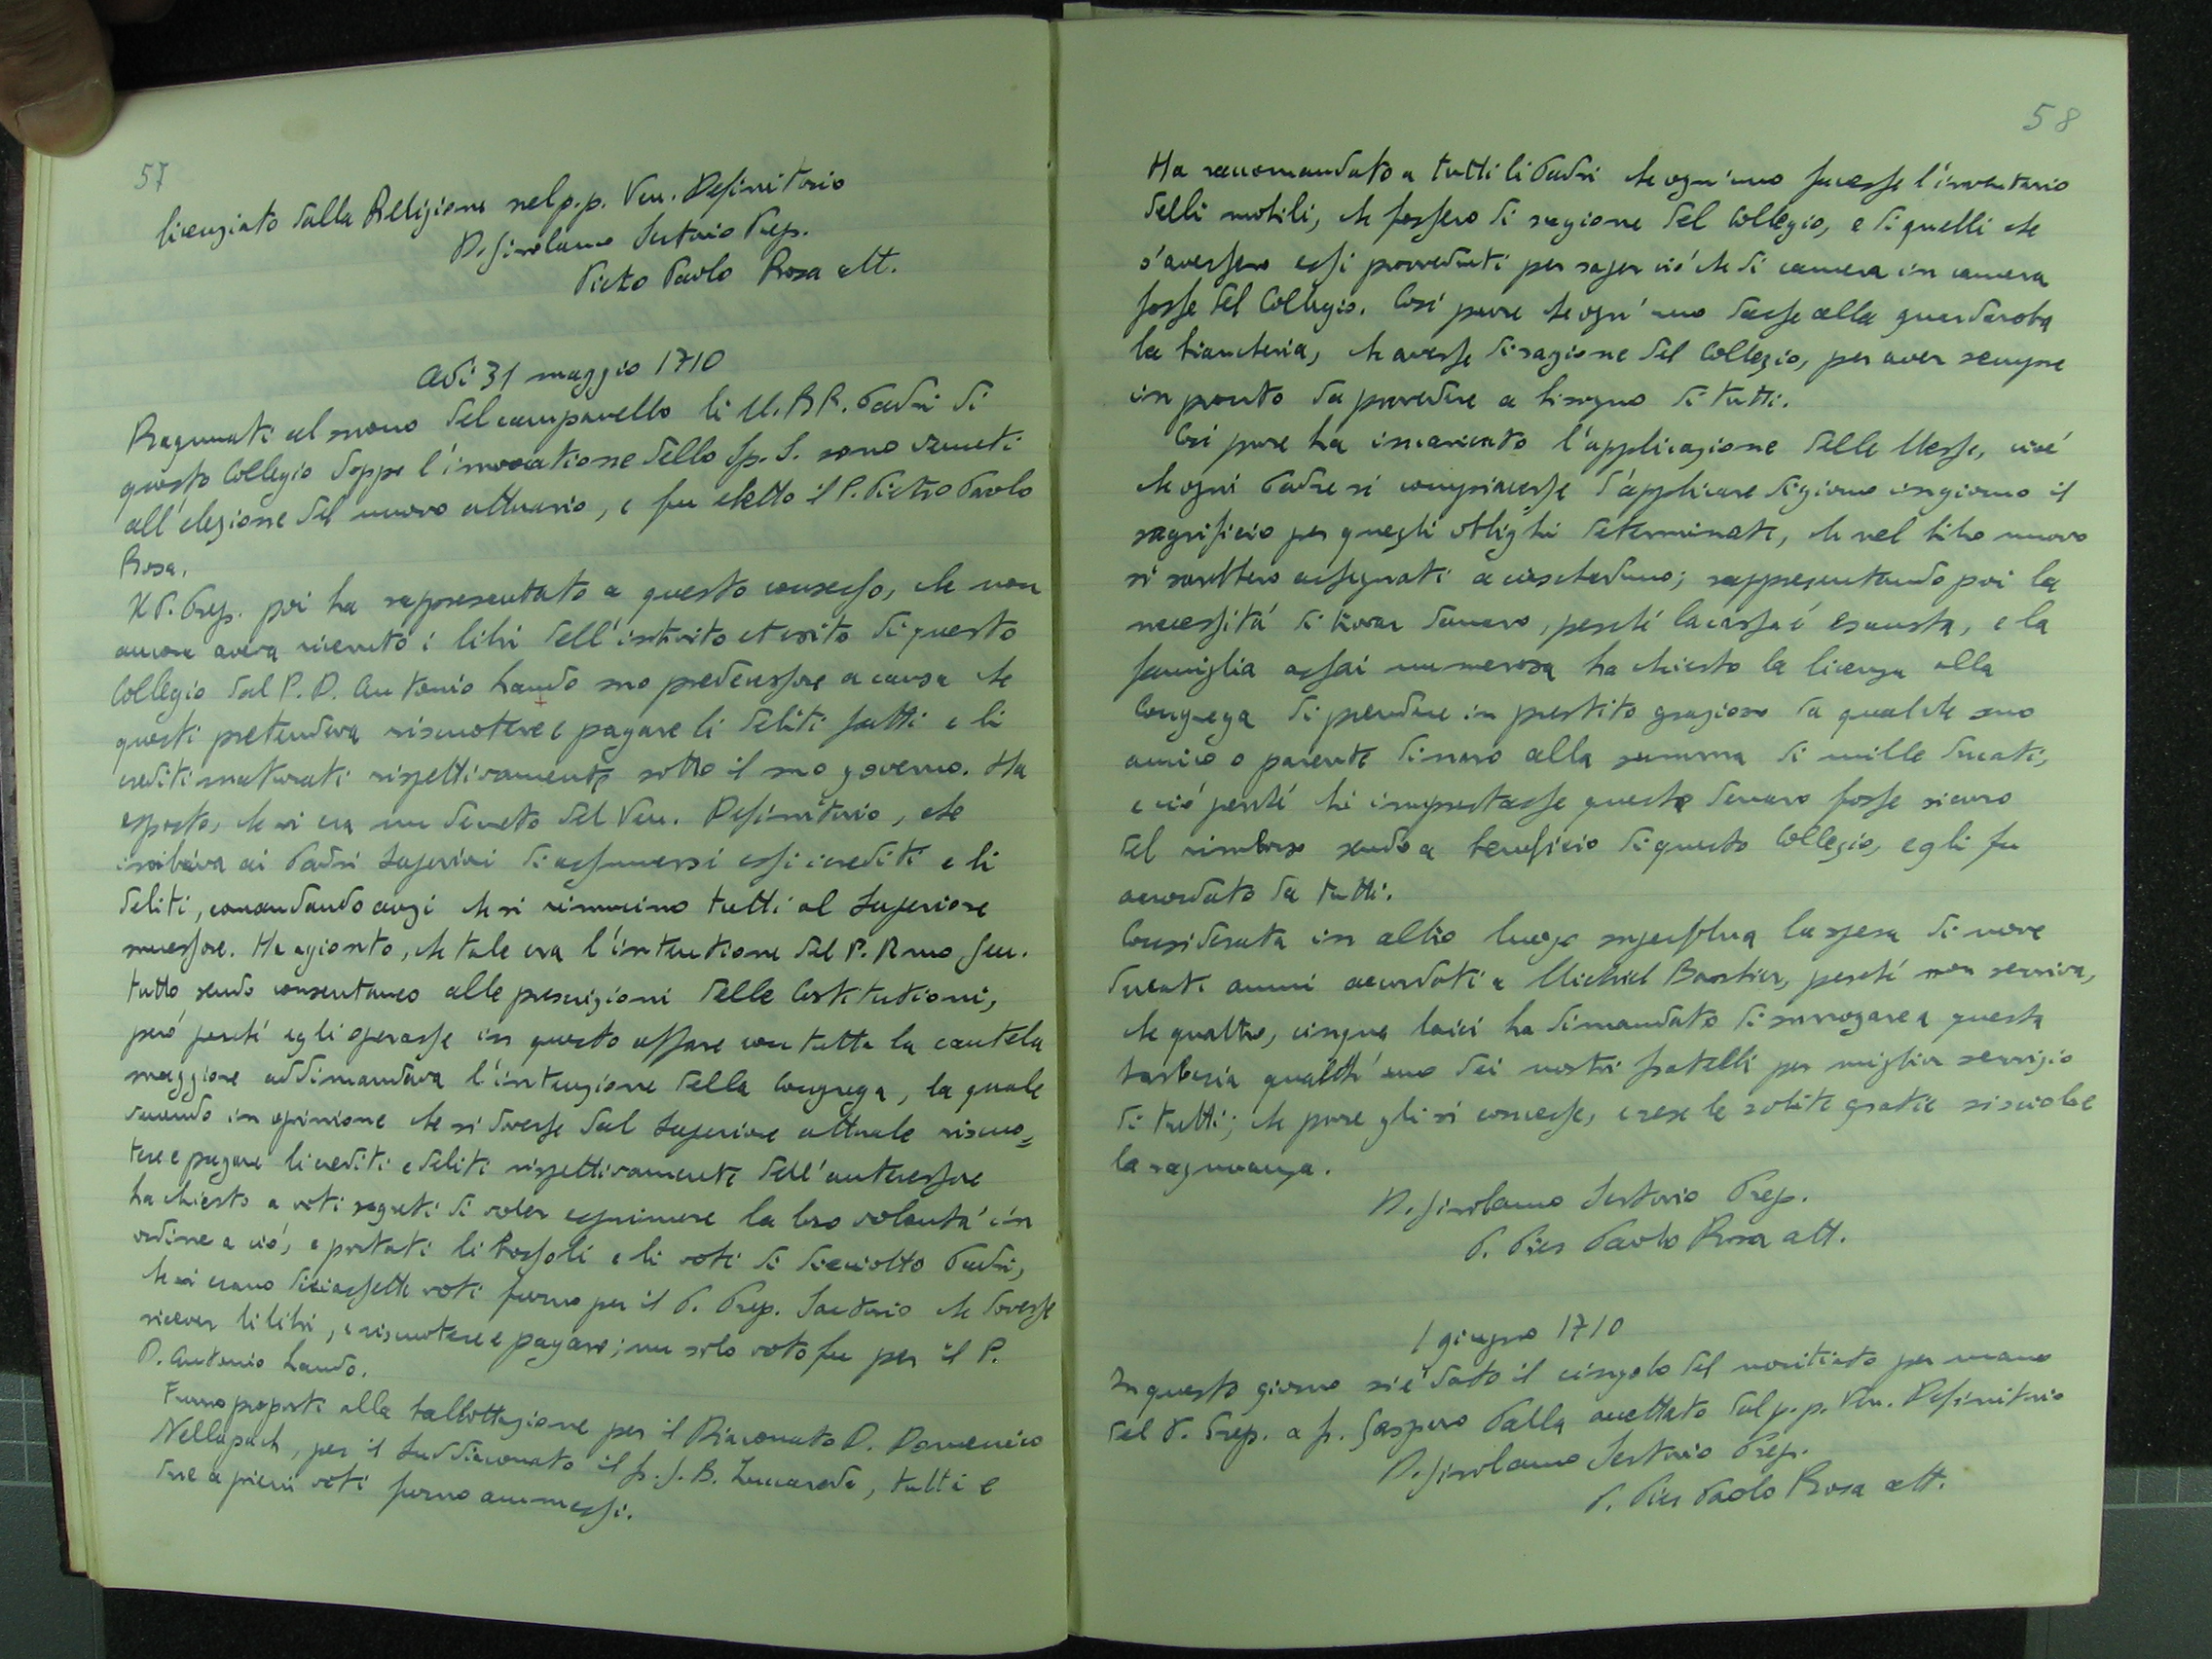 57
licenziato dalla Religione nel p.p. Ven. Definitorio
D. Girolamo Sertorio Prep.
Pietro Paolo Rosa att.
Adi 31 maggio 1710
Ragunati al suono del campanello li M. RR. Padri di
questo Collegio doppo l'invocatione dello Sp. S. sono venuti
all'elezione del nuovo attuario, e fu eletto il P. Pietro Paolo
Rosa.
Il P. Prep. poi ha rappresentato a questo consesso, che non
ancora aveva ricevuto i libri dell'introito et esito di questo
Collegio dal P. D. Antonio Lando suo predecessore a causa che
questi pretendeva riscuotere e pagare li debiti fatti e li
crediti maturati rispettivamente sotto il suo governo. Ha
esposto, che vi era un decreto del Ven. Definitorio, che
inibiva ai Padri Superiori di assumersi essi i crediti e li
debiti, comandando anzi che si rinuncino tutti al Superiore
successore. Ha agionto, che tale era l'intentione del P. R.mo Gen.
tutto sendo consentaneo alle prescrizioni delle Costitutioni,
però perché egli operasse in questo affare con tutta la cautela
maggiore addimandava l'intenzione della Congrega, la quale
venendo in opinione che si dovesse dal Superiore attuale riscuo=
tere e pagare li crediti e debiti rispettivamente dell'antecessore
ha chiesto a voti segreti di voler esprimere la loro volontà in
ordine a ciò, e portati li bossoli e li voti di dieciotto Padri,
che vi erano diciassette voti furno per il P. Prep. Sertorio che dovesse
ricever li libri, e riscuotere e pagare; un solo voto fu per il P.
D. Antonio Lando.
Furno proposti alla ballottazione per il Diaconato D. Domenico
Nellapach, per il Suddiaconato il fr. G. B. Zuccareda, tutti e
due a pieni voti furno ammessi.
58
Ha raccomandato a tutti li Padri che ogn'uno facesse l'inventario
delli mobili, che fossero di ragione del Collegio, e di quelli che
s'avessero essi provveduti per saper ciò che di camera in camera
fosse del Collegio. Così pure che ogn'uno dasse alla guardaroba
la biancheria, che avesse di ragione del Collegio, per aver sempre
in pronto da provedere a bisogno di tutti.
Così pure ha incaricato l'applicazione delle Messe, cioè
che ogni Padre si compiacesse d'applicare di giorno in giorno il
sagrificio per quegli oblighi determinati, che nel libro nuovo
si sarebbero assegnati a ciascheduno; rappresentando poi la
necessità di trovar denaro, perché la cassa è esausta, e la
famiglia assai numerosa ha chiesto la licenza alla
Congrega di prendere in prestito grazioso da qualche suo
amico o parente dinaro alla summa di mille ducati,
e ciò perché chi imprestasse questo denaro fosse sicuro
del rimborso sendo a beneficio di questo Collegio, egli fu
accordato da tutti.
Considerata in altro luogo superflua la spesa di nove
ducati annui accordati a Michiel Barbier, perché non serviva,
che quattro, cinque laici ha dimandato di surrogare a questa
barberia qualch'uno dei nostri fratelli per miglior servizio
di tutti; che pure gli si concesse, e rese le solite gratie si sciolse
la ragunanza.
D. Girolamo Sertorio Prep.
P. Pier Paolo Rosa att.
1 giugno 1710
In questo giorno si è dato il cingolo del novitiato per mano
del P. Prep. a fr. Gasparo Palla accettato dal p.p. Ven. Definitorio
D. Girolamo Sertorio Prep.
P. Pier Paolo Rosa att.